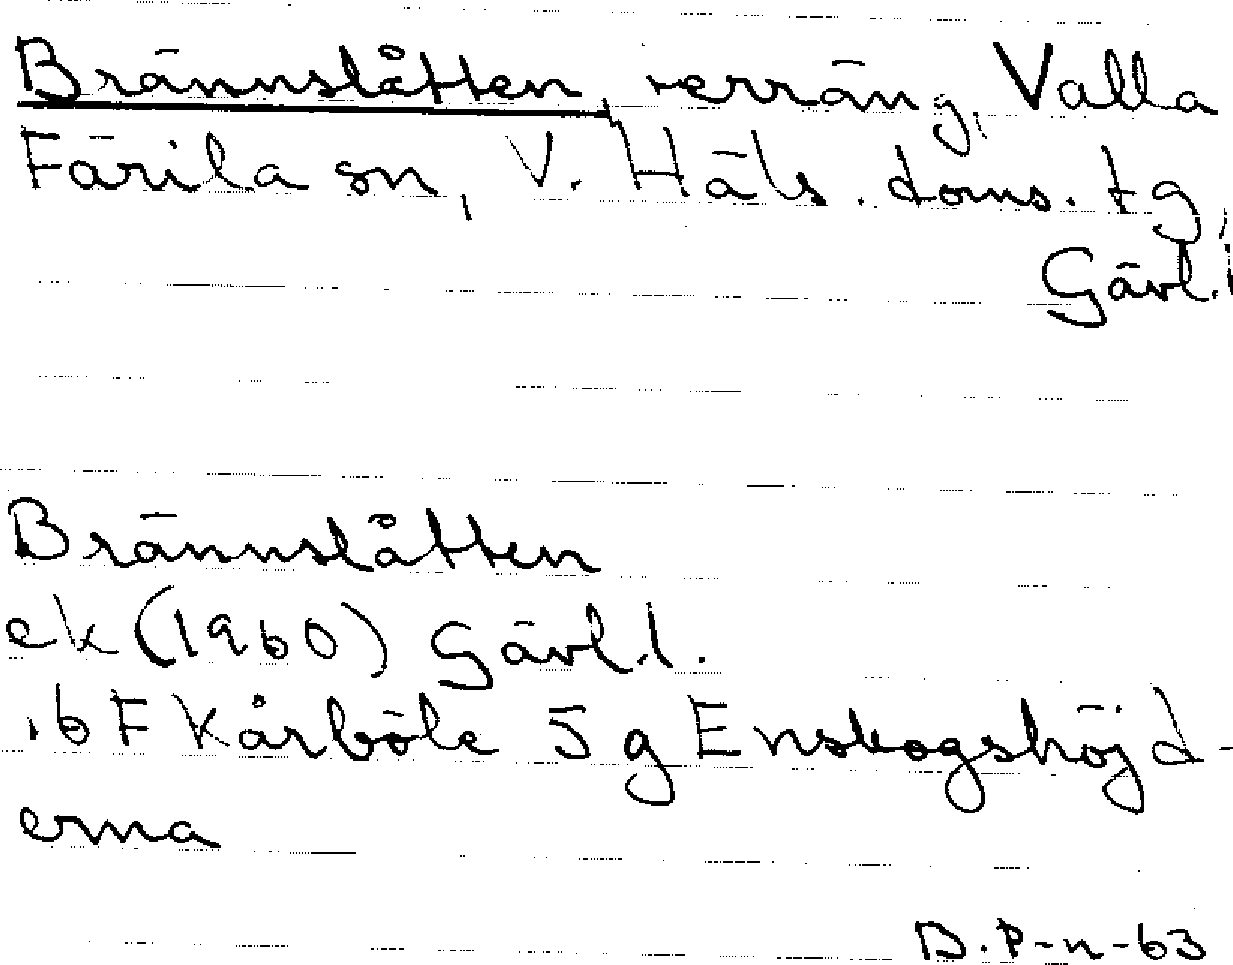 Brännslåtten, terräng, Valla
Färila sn, V. Häls. doms. tg,
Gävl.l
Brännslåtten
ek (1960) Gävl.l.
.6 F Kårböle 5 g Enskogshöjd-
erna
B.P-n-63